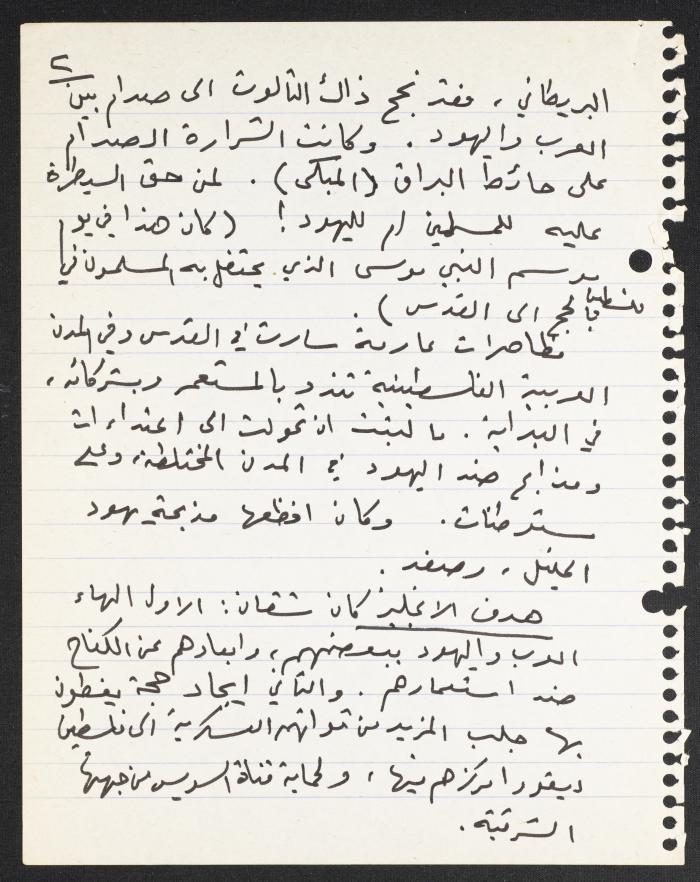 ٢
البريطاني ، فقد نجح ذاك الثالوث الى صدام بين
العرب واليهود . وكانت الشرارة الصدام
على حائط البراق (المبكى) . لمن حق السيطرة
عليه للمسلمين ام لليهود ! (كان هذا في يوم
موسم النبي موسى الذي يحتفل به المسلمون في
فلسطين بالحج الى القدس ) .
مظاهرات عارمة سارت في القدس وفي المدن
العربية الفلسطينية تندد بالمستعمر وبشركائه ،
في البداية . ما لبثت ان تحولت الى اعتداءات
ومذابح ضد اليهود في المدن المختلطة ، وعلى
مستوطنات . وكان افظعها مذبحة يهود
الخليل ، وصفد .
هدف الانجليز كان شقان : الاول الهاء
العرب واليهود ببعضهم ، وابعادهم عن الكفاح
ضد استعمارهم . والثاني ايجاد حجة يغطون
بها جلب المزيد من قواتهم العسكرية الى فلسطين
ليقووا مركزهم فيها ، ولحماية قناة السويس من جهتها
الشرقية .